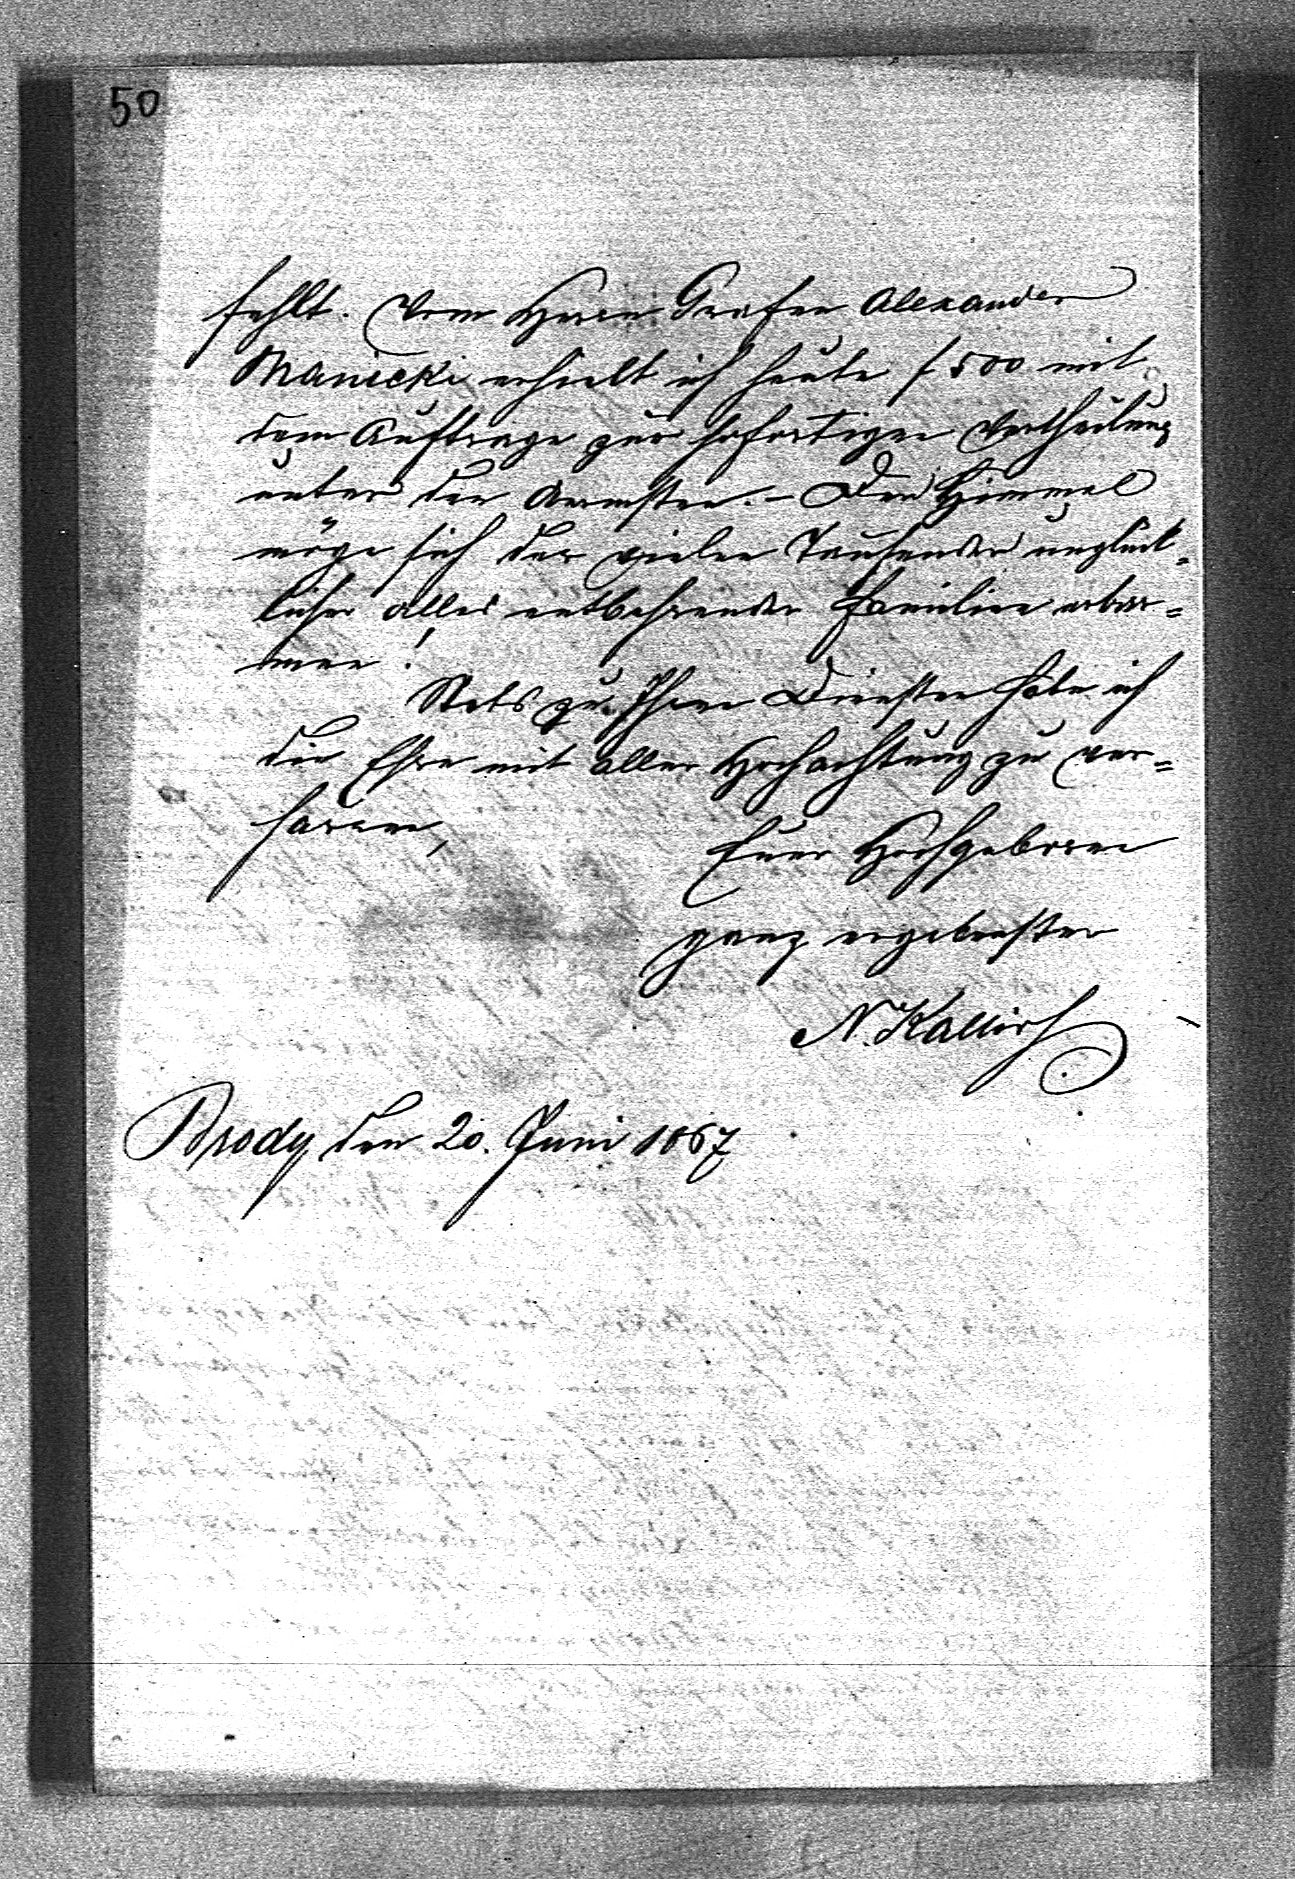 50
fehlt. Vom Herrn Grafen Alexander
Maniecki erhielt ich heute f 500 mit
dem Auftrage zur sofortigen Vertheilung
unter den Aermsten. – Der Himmel
möge sich der vielen Tausenden unglück-
licher alles entbehrender Familien erbar=
men!
Stets zu Ihren Diensten habe ich
die Ehre mit aller Hochachtung zu ver=
harren,
Euer Hochgeboren
ganz ergebenster
N. Kallir
Brody den 20. Juni 1867